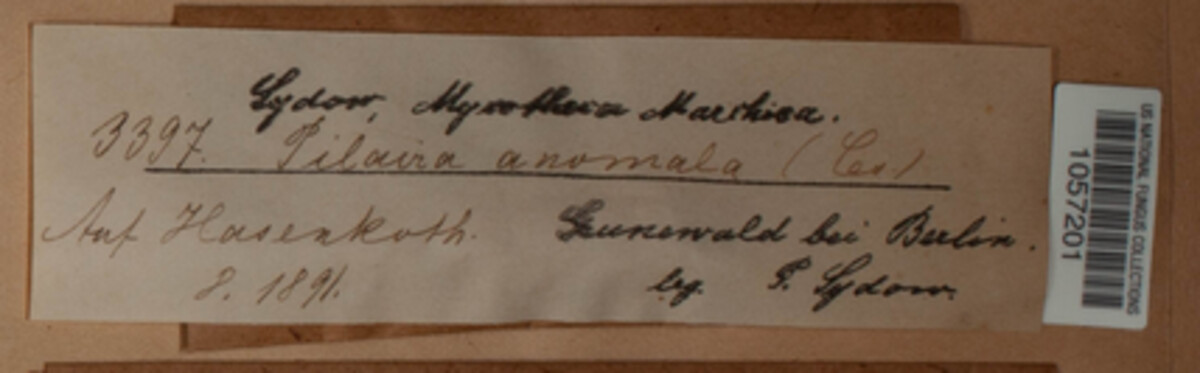 Sydow, Mycotheca Marchica.
3397. Pilaira anomala (Ces)
Auf Hasenkoth. Grunewald bei Berlin.
8. 1891. leg. P. Sydow.
US NATIONAL FUNGUS COLLECTIONS
1057201